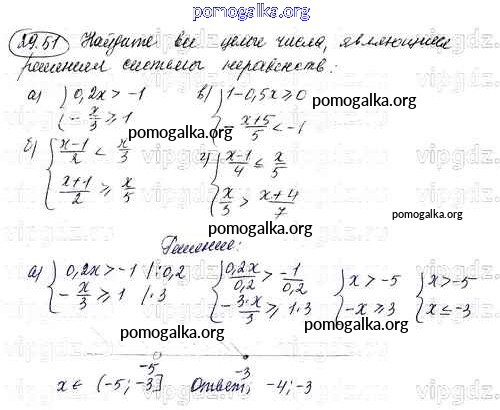 pomogalka.org
29.51 Найдите все целые числа, являющиеся
решением системы неравенств:
а) { 0,2x > -1
- x/3 ≥ 1
в) { 1 - 0,5x ≥ 0
- x+5/5 < -1
pomogalka.org
б) { x-1/2 < x/3
x+1/2 ≥ x/5
г) { x-1/4 ≤ x/5
x/3 > x+4/7
pomogalka.org
pomogalka.org
pomogalka.org
Решение:
а) { 0,2x > -1 /:0,2
- x/3 ≥ 1 /·3
{ 0,2x/0,2 > -1/0,2
- 3·x/3 ≥ 1·3
{ x > -5
-x ≥ 3
{ x > -5
x ≤ -3
pomogalka.org
pomogalka.org
-5 -3
x ∈ (-5; -3] Ответ: -4; -3
pomogalka.org